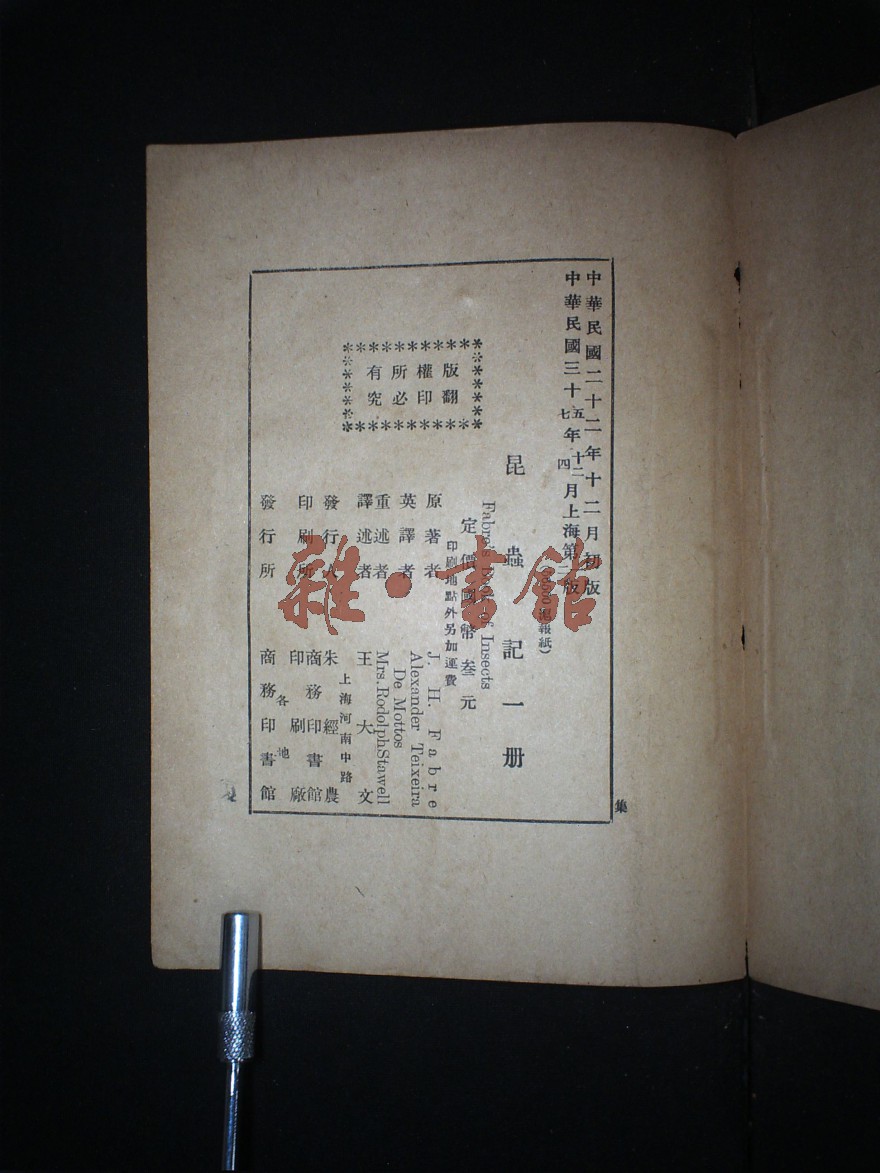 中華民國二十二年十二月初版
中華民國三十五七年十二四月上海第版
報紙)
昆蟲記一册
Fabre's Book of Insects
定價國幣叁元
印刷地點外另加運費
版權所有
翻印必究
原著者 J. H. Fabre
英譯者 Alexander Teixeira
De Mottos
重述者 Mrs. Rodolph Stawell
譯述者 王大文
發行人 朱經農
上海河南中路
印刷所 商務印書館
印刷廠
各地
發行所 商務印書館
集
雜·書館